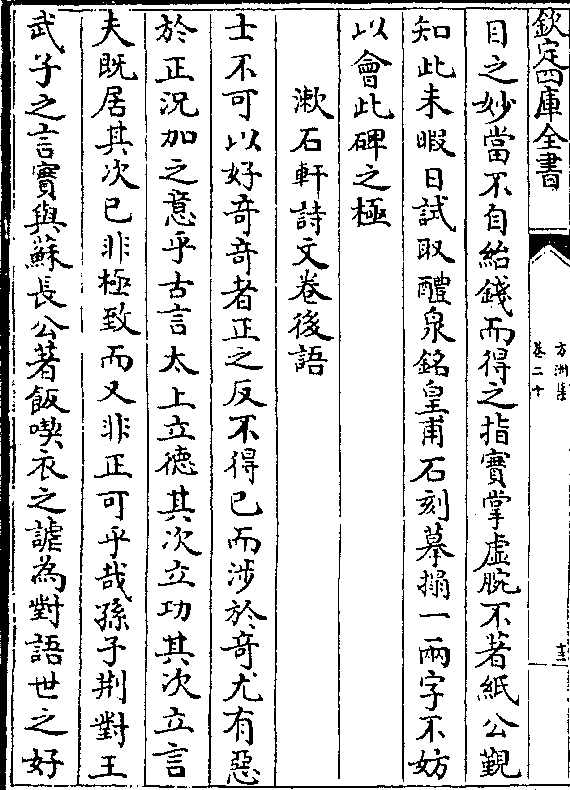 欽定四庫全書
方洲集
卷二十
目之妙當不自紿錢而得之指實掌虛腕不著紙公觀
知此未暇日試取醴泉銘皇甫石刻摹搨一兩字不妨
以會此碑之極
漱石軒詩文卷後語
士不可以好奇奇者正之反不得已而涉於奇尤有惡
於正況加之意乎古言太上立德其次立功其次立言
夫既居其次已非極致而又非正可乎哉孫子荆對王
武子之言實與蘇長公著飯喫衣之謔為對語世之好